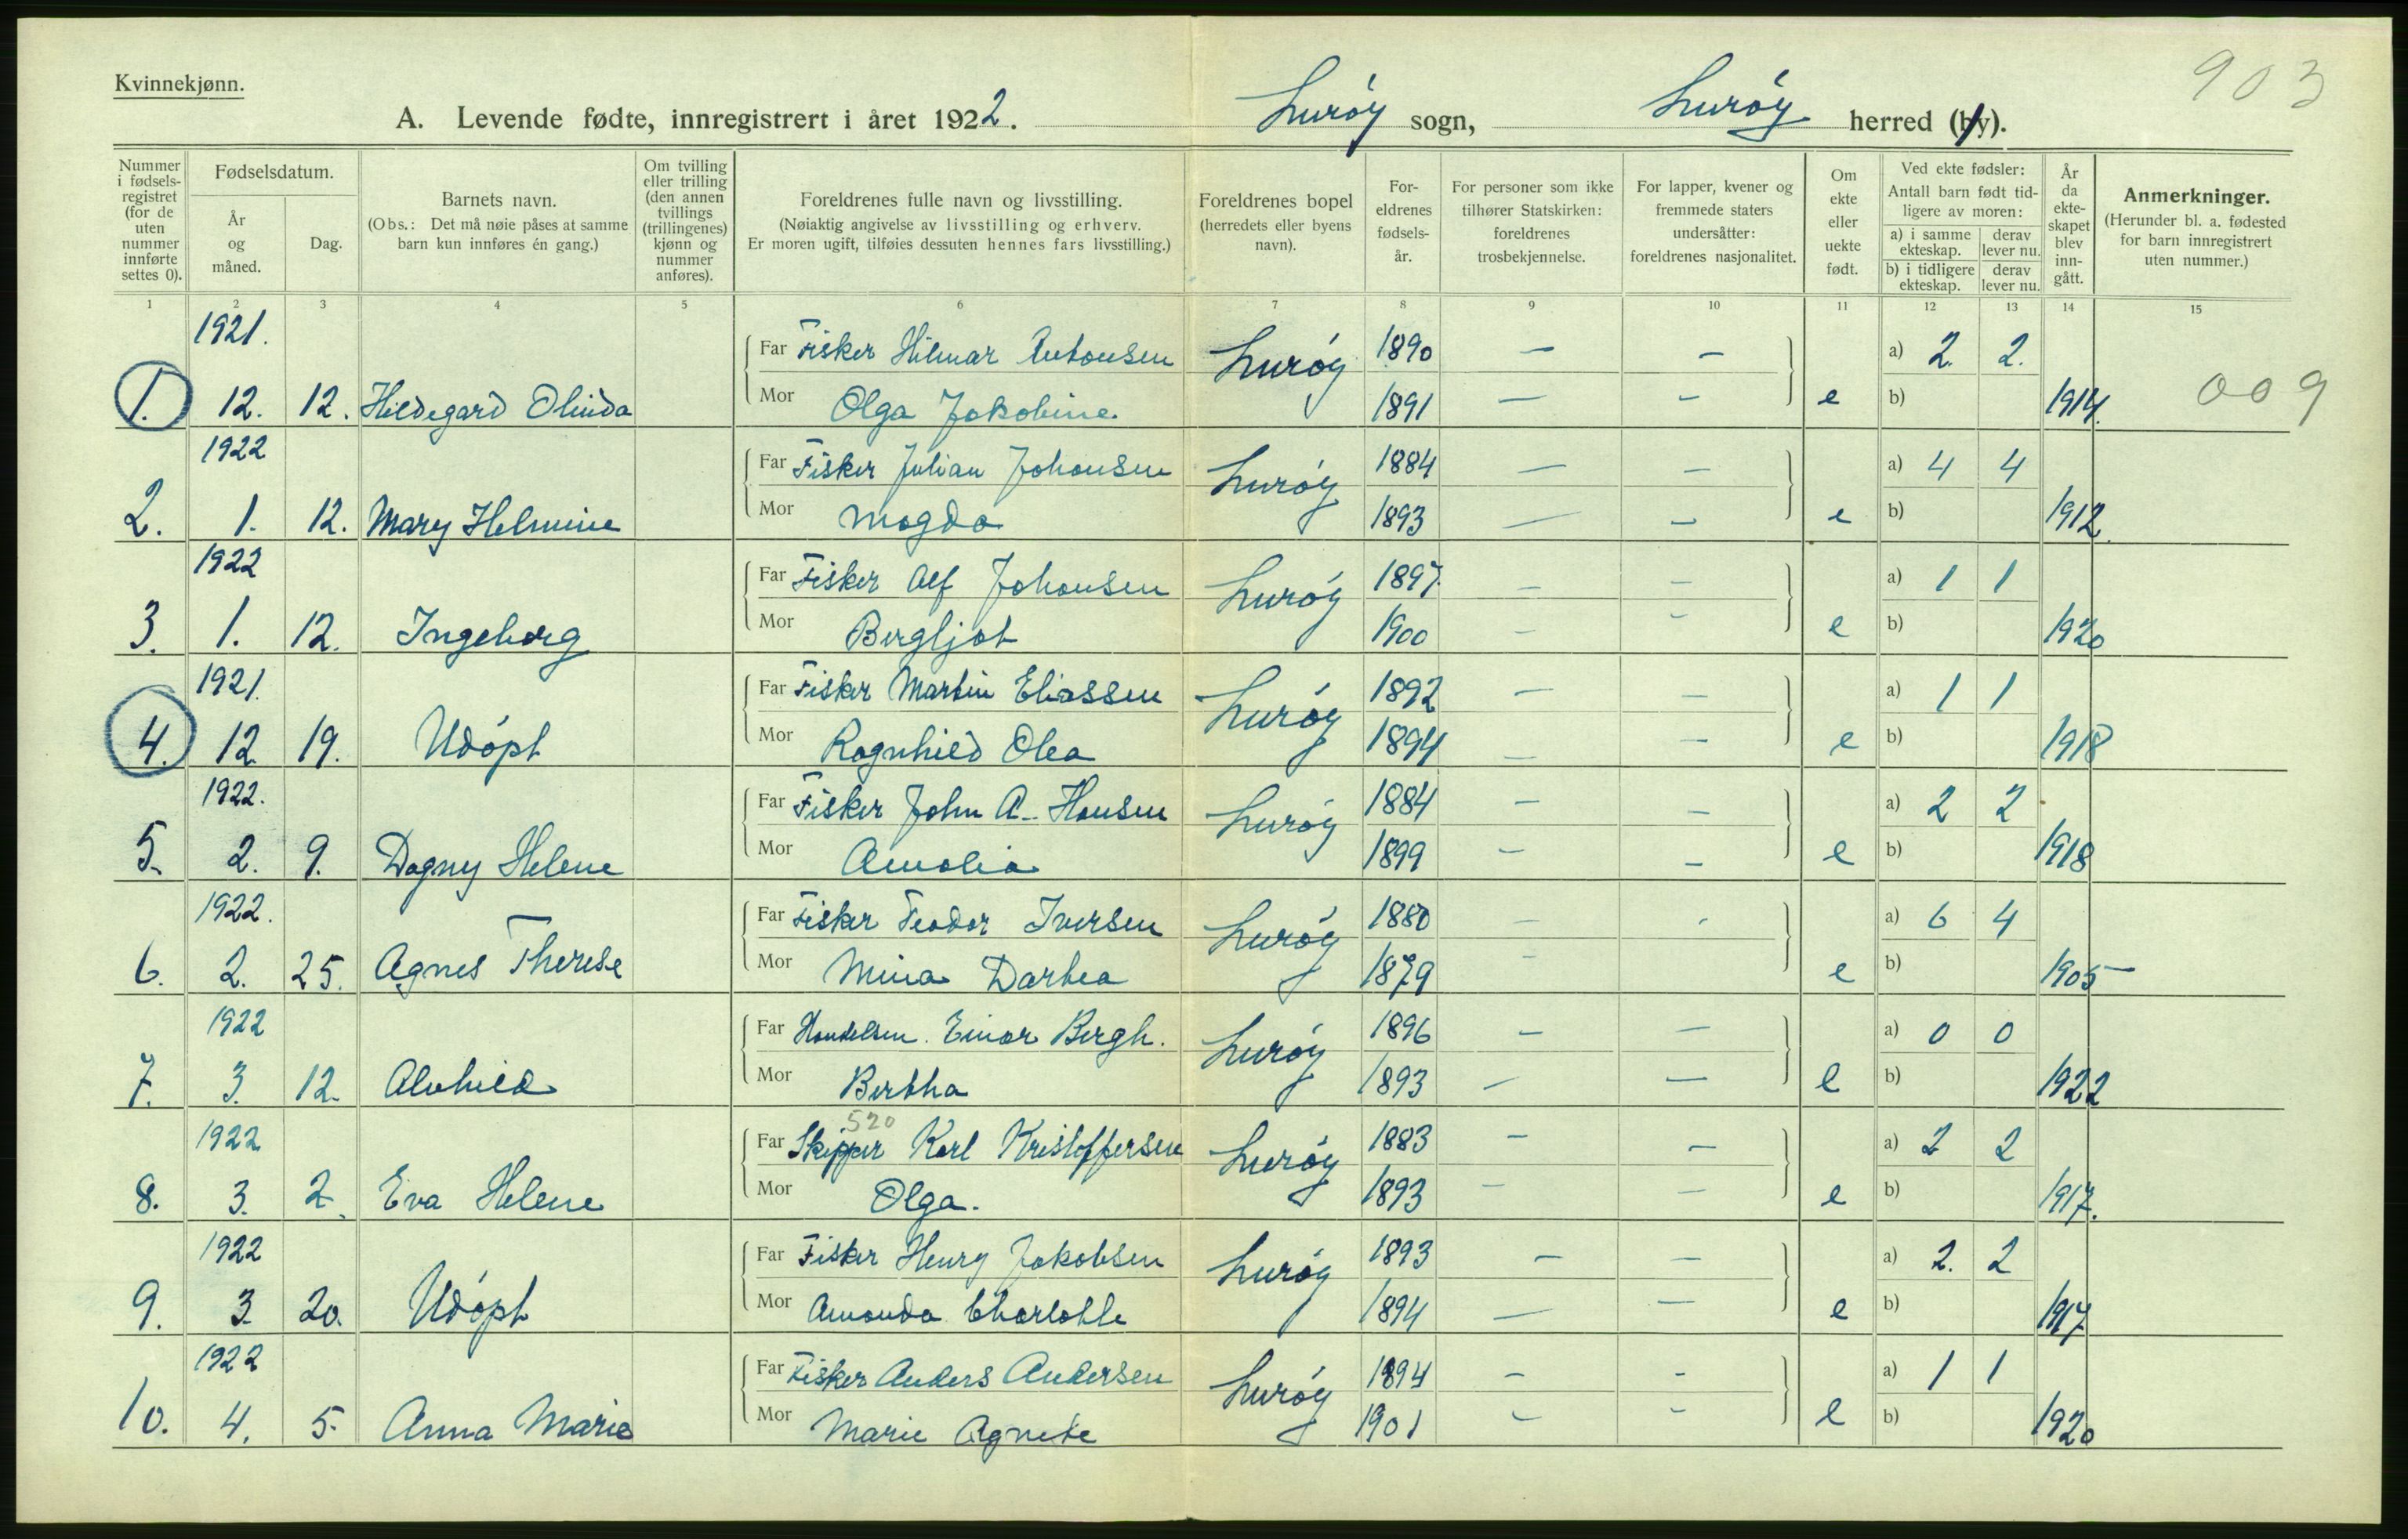 903
Kvinnekjønn.
A. Levende fødte, innregistrert i året 1922. Lurøy sogn, Lurøy herred (by).
Nummer i fødsels-registret (for de uten nummer innførte settes 0).
Fødselsdatum.
År og måned.
Dag.
Barnets navn.
(Obs.: Det må nøie påses at samme barn kun innføres én gang.)
Om tvilling eller trilling (den annen tvillings (trillingenes) kjønn og nummer anføres).
Foreldrenes fulle navn og livsstilling.
(Nøiaktig angivelse av livsstilling og erhverv.
Er moren ugift, tilføies dessuten hennes fars livsstilling.)
Foreldrenes bopel (herredets eller byens navn).
For-eldrenes fødsels-år.
For personer som ikke tilhører Statskirken: foreldrenes trosbekjennelse.
For lapper, kvener og fremmede staters undersåtter: foreldrenes nasjonalitet.
Om ekte eller uekte født.
Ved ekte fødsler:
Antall barn født tid-ligere av moren:
a) i samme ekteskap. derav lever nu.
b) i tidligere ekteskap. derav lever nu.
År da ekte-skapet blev inn-gått.
Anmerkninger.
(Herunder bl. a. fødested for barn innregistrert uten nummer.)
1 2 3 4 5 6 7 8 9 10 11 12 13 14 15
1921.
Far Fisker Hilmar Antonsen Lurøy 1890 — — a) 2 2.
1. 12. 12. Hildegard Olinda Mor Olga Jakobine 1891 — — e b) 1914. 009
1922
Far Fisker Julian Johansen Lurøy 1884 — — a) 4 4
2. 1. 12. Mary Helmine Mor Magda 1893 — — e b) 1912.
1922
Far Fisker Alf Johansen Lurøy 1897 — — a) 1 1
3. 1. 12. Ingeborg Mor Bergljot 1900 — — e b) 1920
1921.
Far Fisker Martin Eliassen Lurøy 1892 — — a) 1 1
4. 12 19. Udöpt Mor Ragnhild Olea 1894 — — e b) 1918
1922.
Far Fisker John A. Hansen Lurøy 1884 — — a) 2 2
5. 2. 9. Dagny Helene Mor Amalia 1899 — — e b) 1918
1922.
Far Fisker Teodor Iversen Lurøy 1880 — — a) 6 4
6. 2. 25. Agnes Therese Mor Mina Dartea 1879 — e b) 1905
1922
Far Handelsm. Einar Bergh. Lurøy 1896 — — a) 0 0
7. 3. 12. Alvhild Mor Bertha 1893 — — e b) 1922
520
1922
Far Skipper Karl Kristoffersen Lurøy 1883 — — a) 2 2
8. 3. 2. Eva Helene Mor Olga. 1893 — — e b) 1917.
1922
Far Fisker Henry Jakobsen Lurøy 1893 — — a) 2. 2
9. 3. 20. Udöpt Mor Amanda Charlotte 1894 — — e b) 1917
1922
Far Fisker Anders Andersen Lurøy 1894 — — a) 1 1
10. 4. 5. Anna Marie Mor Marie Agnete 1901 — — e b) 1920